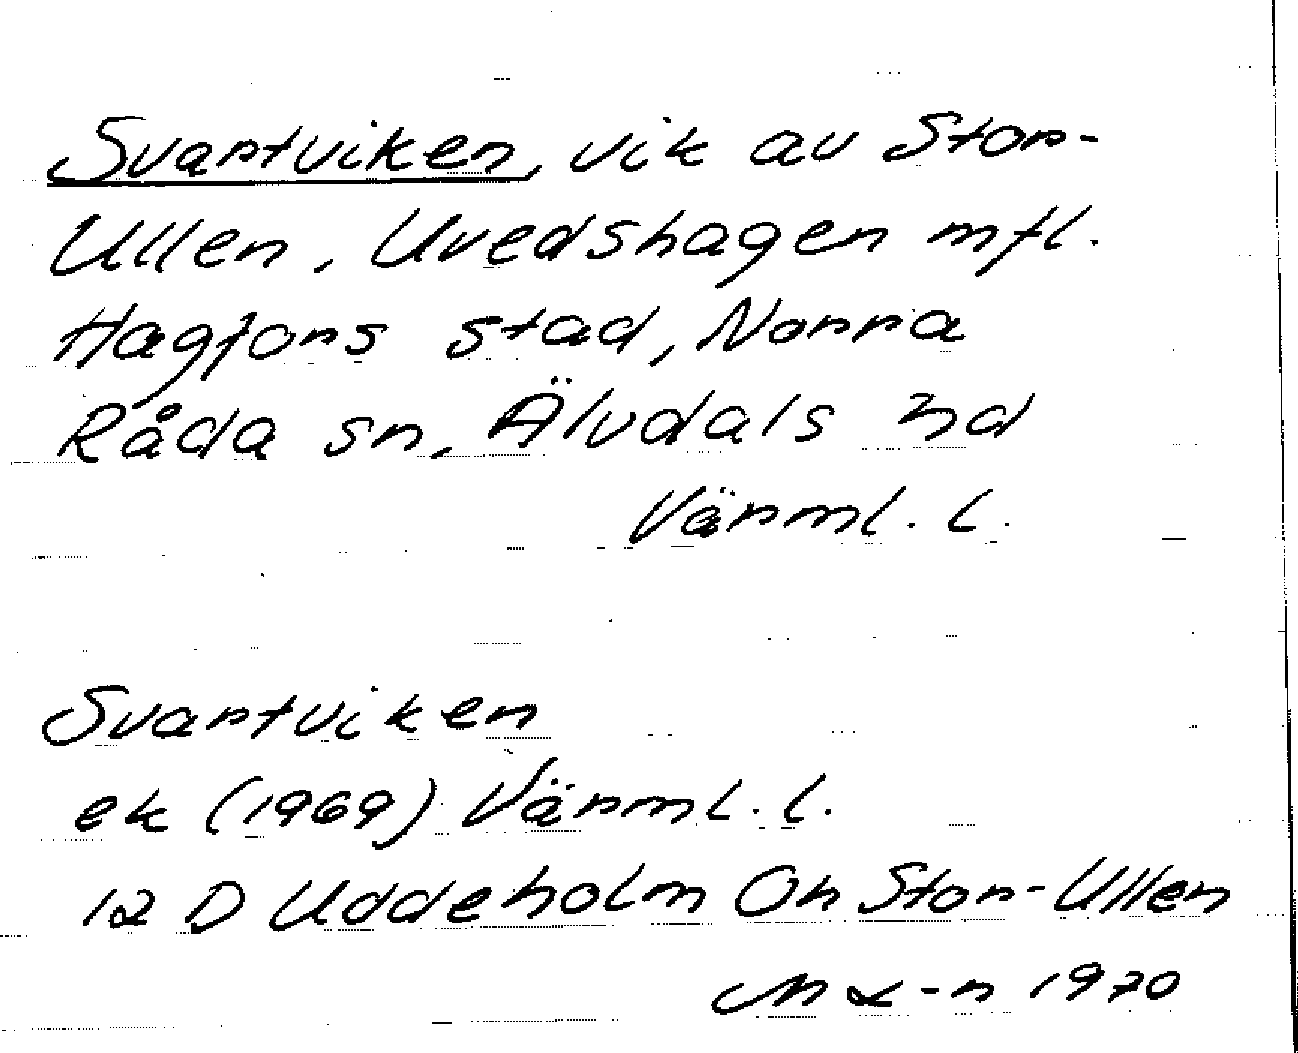 Svartviken, vik av Stor-
Ullen, Uvedshagen mfl.
Hagfors stad, Norra
Råda sn, Älvdals hd
Värml. l.
Svartviken
ek (1969) Värml. l.
12 D Uddeholm Oh Stor-Ullen
1970